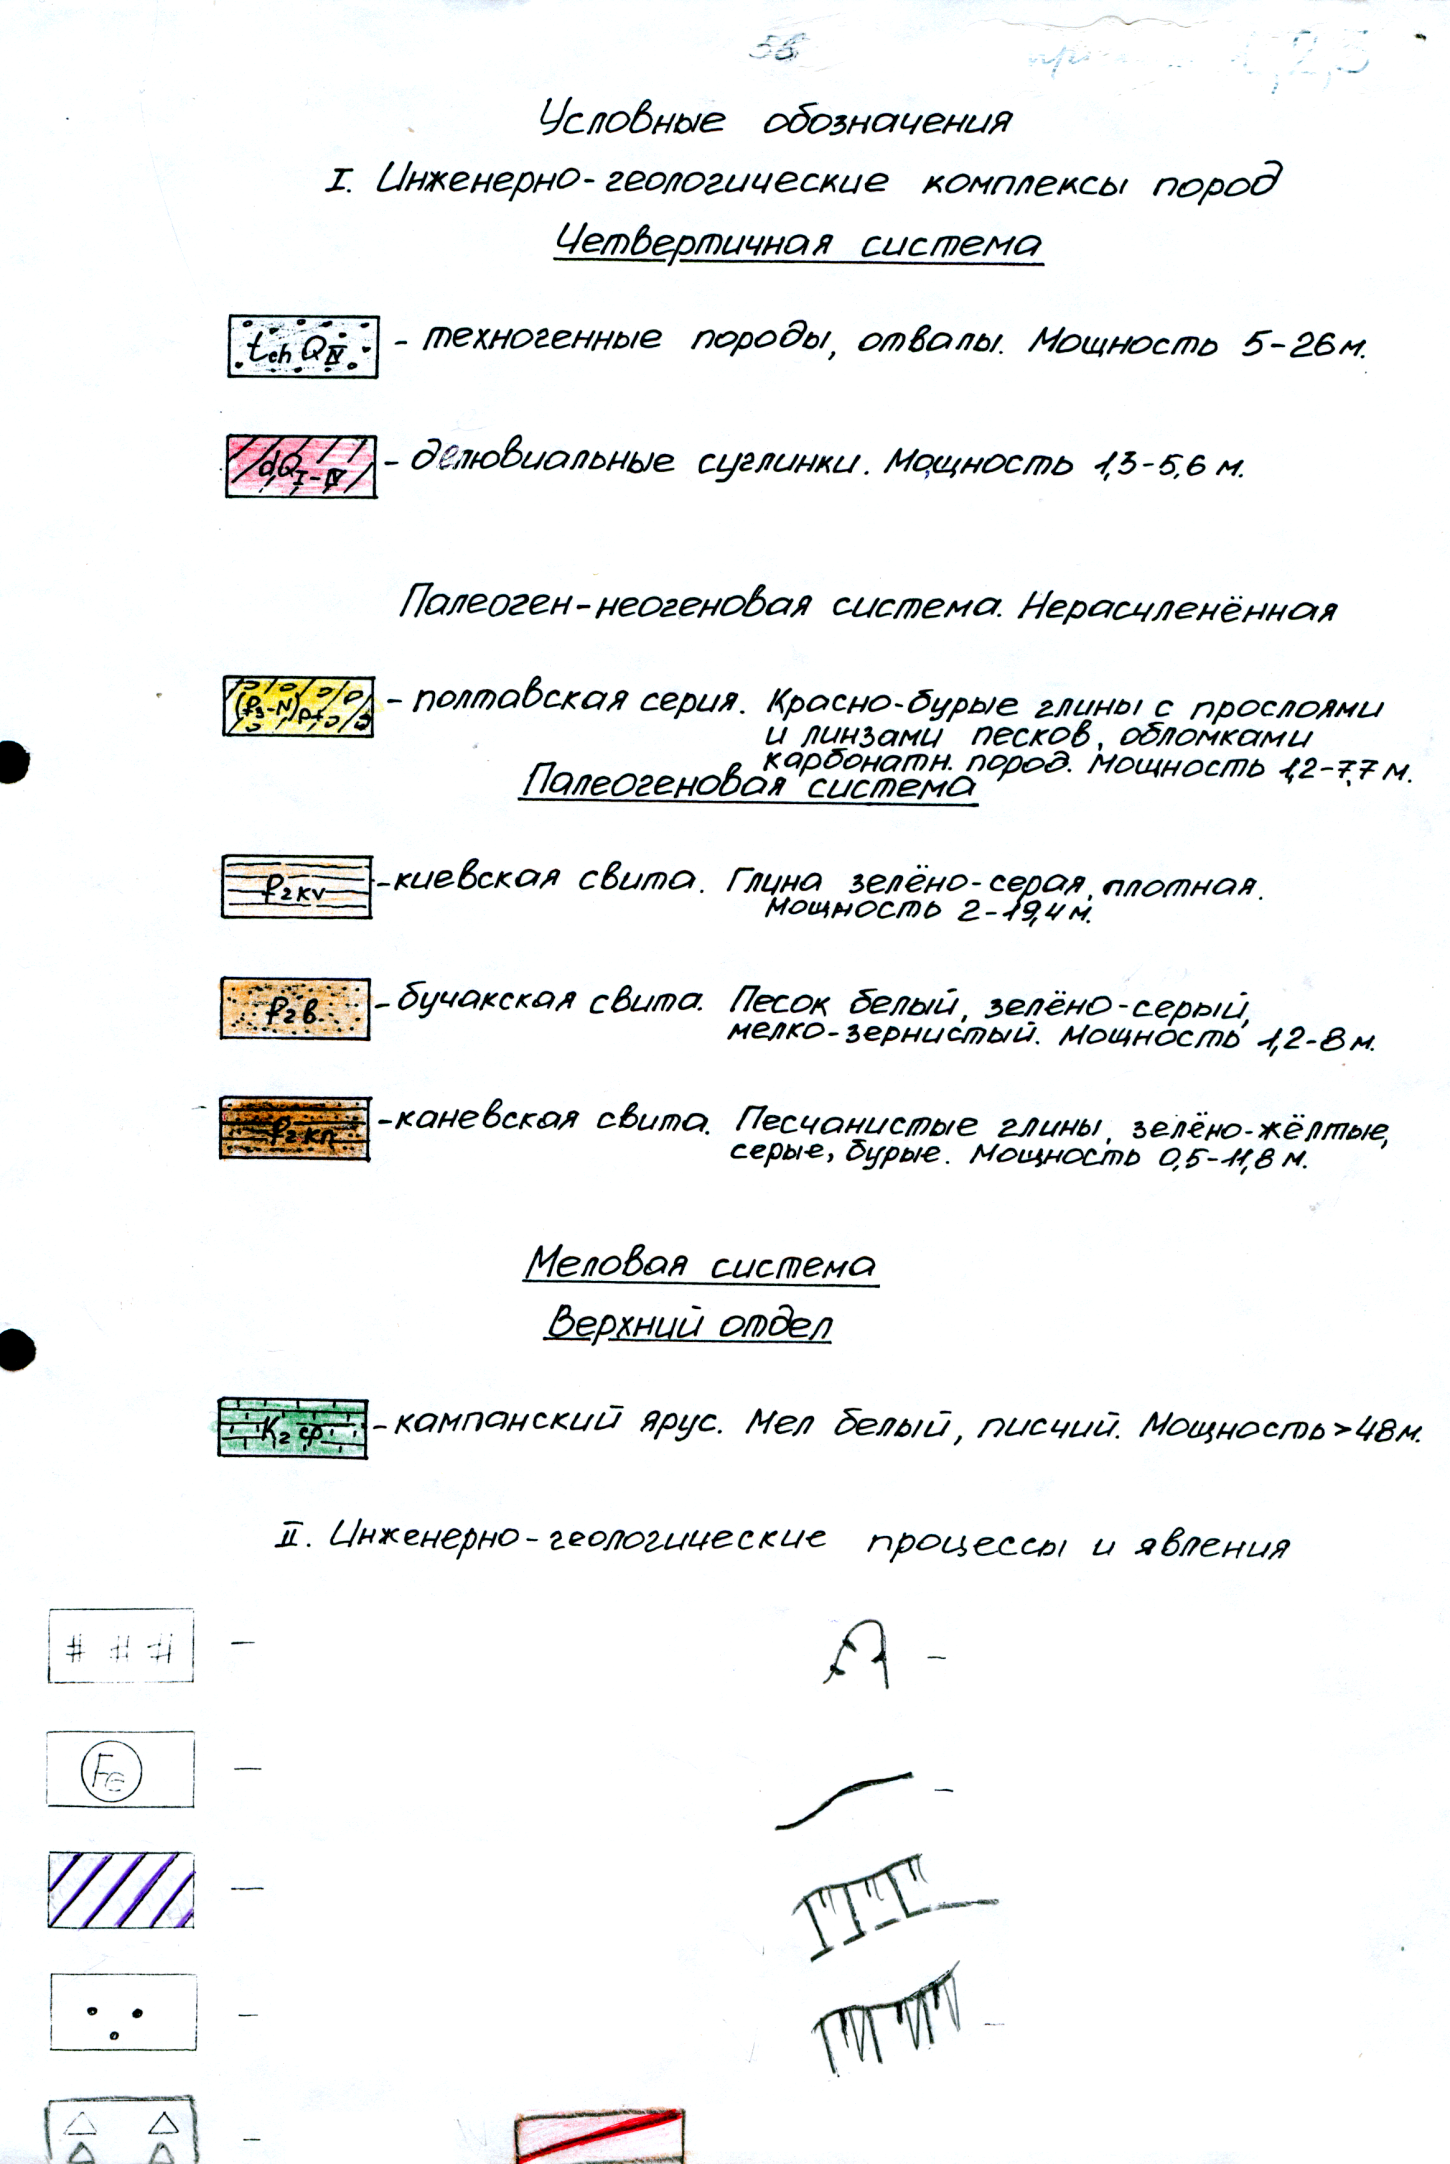 58
1,2,3
Условные обозначения
I. Инженерно-геологические комплексы пород
Четвертичная система
tch QIV - техногенные породы, отвалы. Мощность 5-26м.
dQI-IV - делювиальные суглинки. Мощность 1,3-5,6 м.
Палеоген-неогеновая система. Нерасчленённая
(P3-N)pt - полтавская серия. Красно-бурые глины с прослоями
и линзами песков, обломками
карбонатн. пород. Мощность 1,2-7,7 м.
Палеогеновая система
P2 kv - киевская свита. Глина зелёно-серая, плотная.
Мощность 2-19,4 м.
P2 b - бучакская свита. Песок белый, зелёно-серый,
мелко-зернистый. Мощность 1,2-8 м.
P2 kn - каневская свита. Песчанистые глины, зелёно-жёлтые,
серые, бурые. Мощность 0,5-11,8 м.
Меловая система
Верхний отдел
K2 cp - кампанский ярус. Мел белый, писчий. Мощность >48м.
II. Инженерно-геологические процессы и явления
# # # -
Fe -